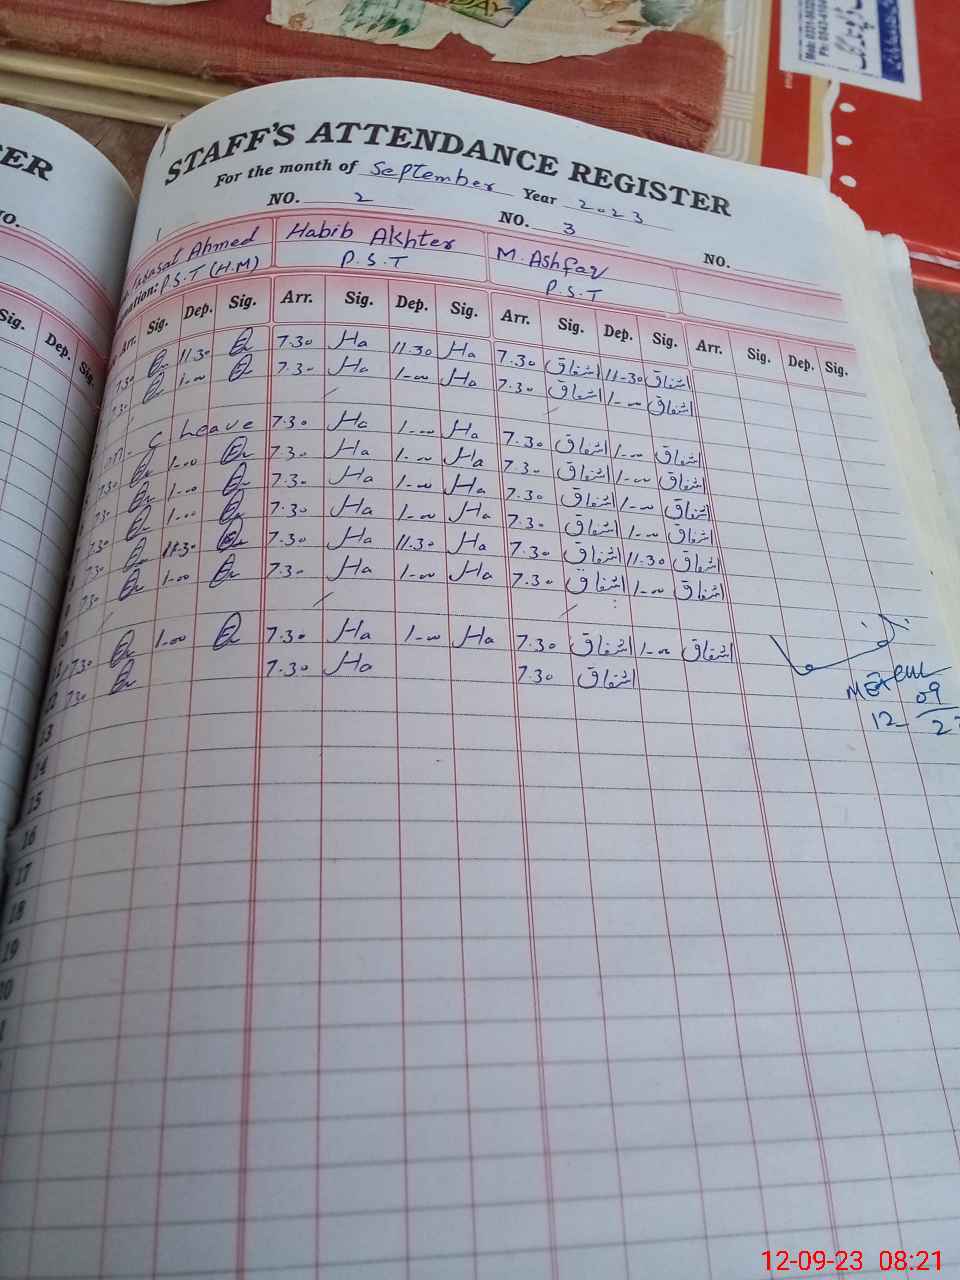 STAFF'S ATTENDANCE REGISTER
For the month of September Year 2023
NO. 2 NO. 3 NO.
Ahmed Habib Akhter M. Ashfaq
P.S.T (H.M) P.S.T P.S.T
Arr. Sig. Dep. Sig. Arr. Sig. Dep. Sig. Arr. Sig. Dep. Sig. Arr. Sig. Dep. Sig.
7.30 11.30 7.30 Ha 11.30 Ha 7.30 اشفاق 11-30 اشفاق
7.30 1-00 7.30 Ha 1-00 Ha 7.30 اشفاق 1-00 اشفاق
C Leave 7.30 Ha 1-00 Ha 7.30 اشفاق 1-00 اشفاق
7.30 1-00 7.30 Ha 1-00 Ha 7.30 اشفاق 1-00 اشفاق
7.30 1-00 7.30 Ha 1-00 Ha 7.30 اشفاق 1-00 اشفاق
7.30 1-00 7.30 Ha 1-00 Ha 7.30 اشفاق 1-00 اشفاق
7.30 11.30 7.30 Ha 11.30 Ha 7.30 اشفاق 11.30 اشفاق
7.30 1-00 7.30 Ha 1-00 Ha 7.30 اشفاق 1-00 اشفاق
7.30 1-00 7.30 Ha 1-00 Ha 7.30 اشفاق 1-00 اشفاق
12 7.30 7.30 Ha 7.30 اشفاق
13
14
15
16
17
18
19
12-09
12-09-23 08:21